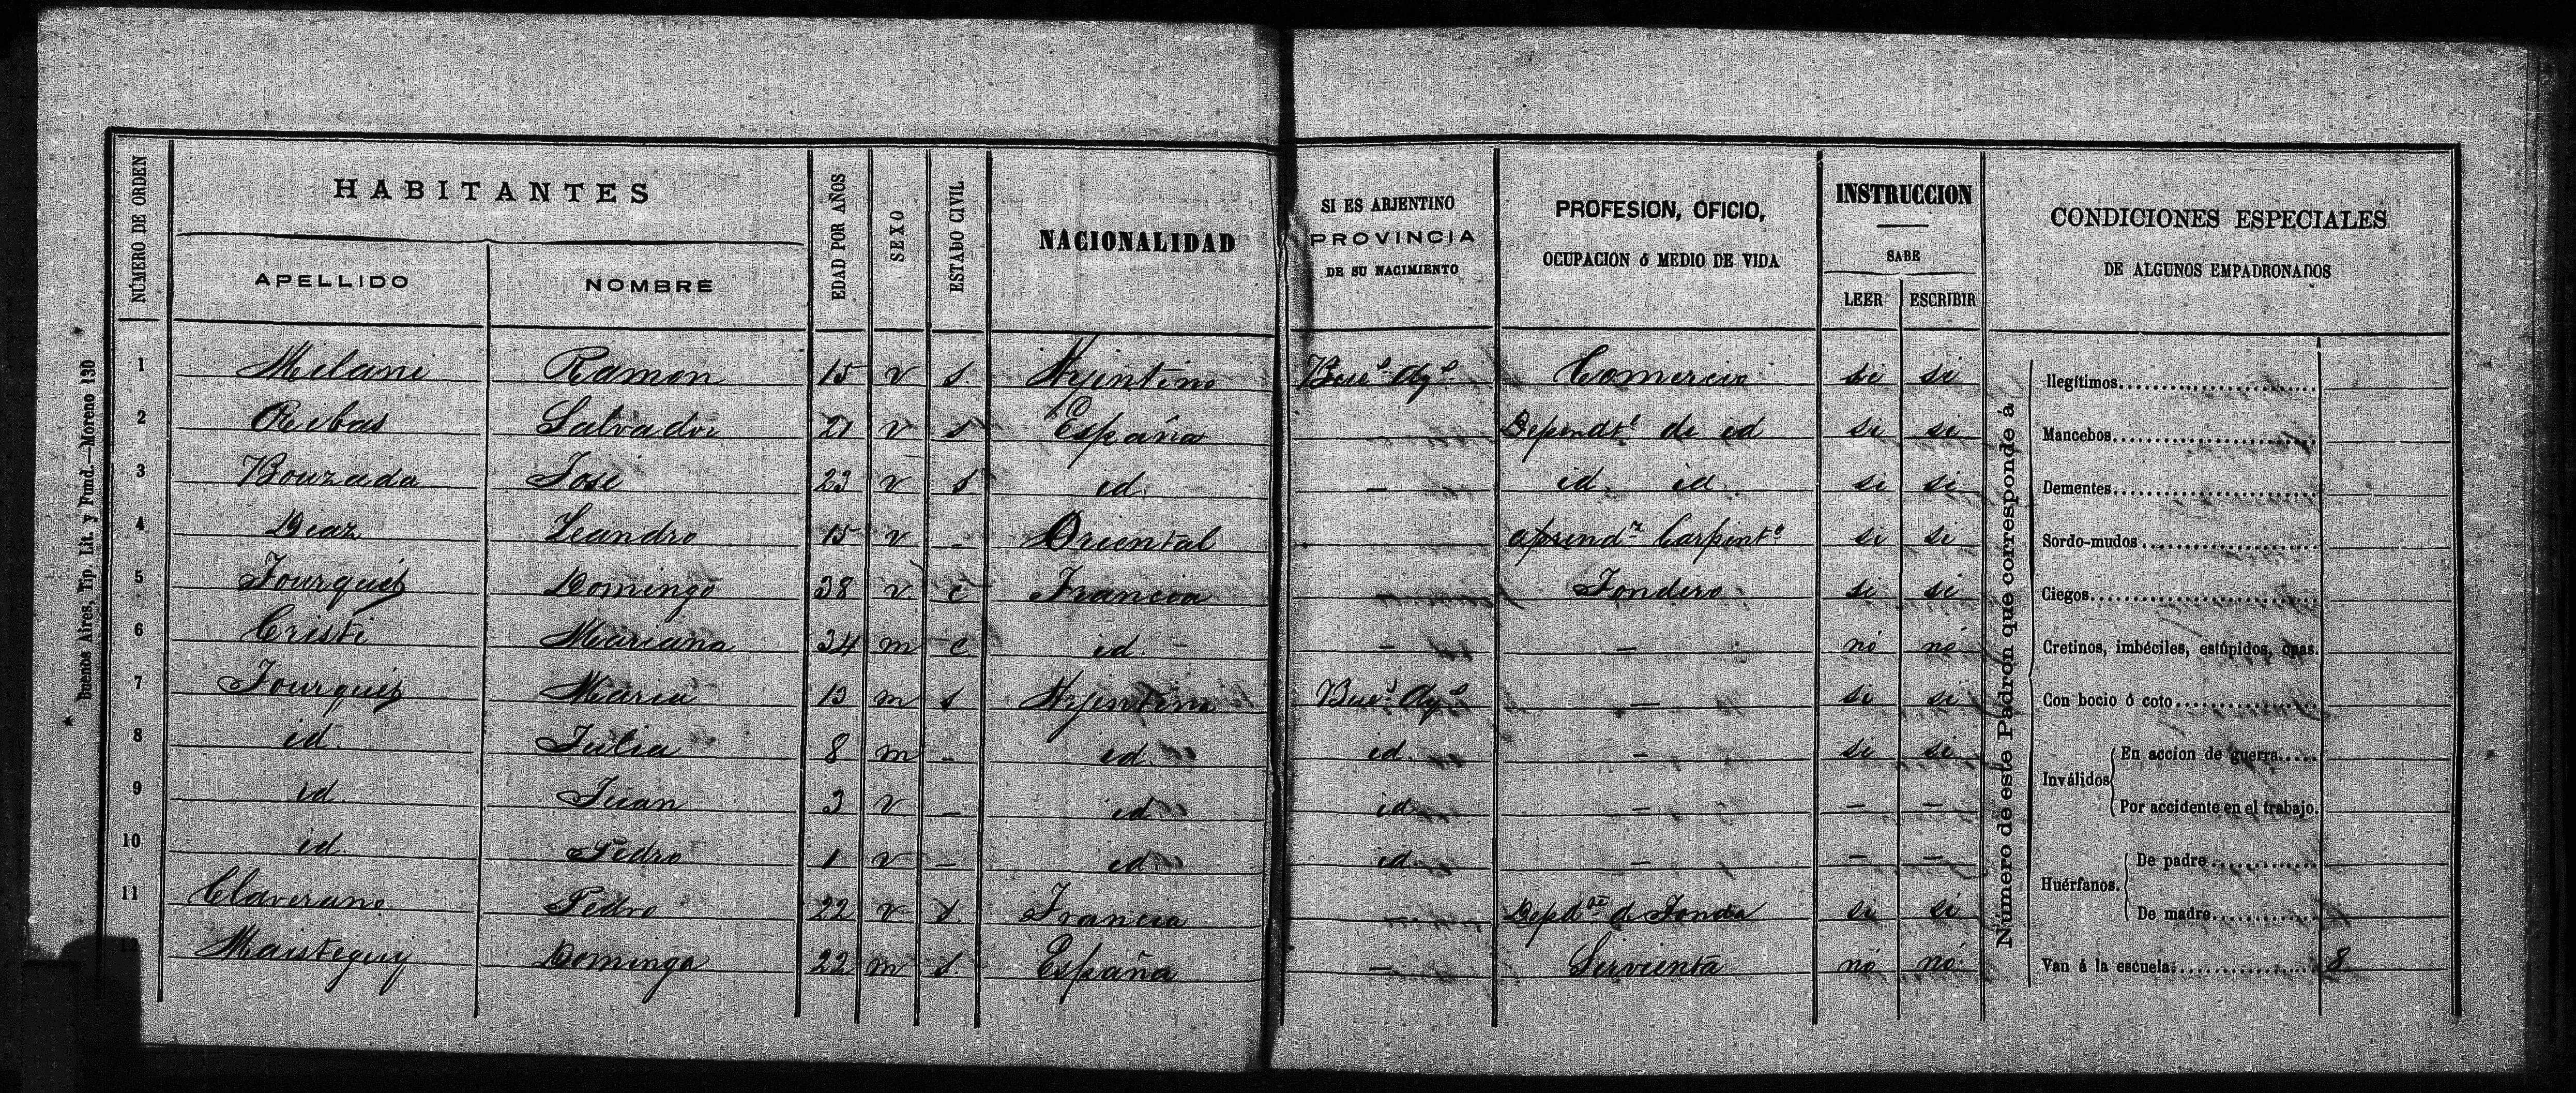 NÚMERO DE ORDEN
HABITANTES
APELLIDO
NOMBRE
EDAD POR AÑOS
SEXO
ESTADO CIVIL
NACIONALIDAD
SI ES ARJENTINO
PROVINCIA
DE SU NACIMIENTO
PROFESION, OFICIO,
OCUPACION ó MEDIO DE VIDA
INSTRUCCION
SABE
LEER ESCRIBIR
CONDICIONES ESPECIALES
DE ALGUNOS EMPADRONADOS
1 Milani Ramon 15 v s. Arjentino Bues Ays Comercio si si
2 Ribas Salvador 21 v s España - Dependte de id si si
3 Bouzada José 23 v s id. - id. id si si
4 Diaz Leandro 15 v - Oriental - aprendz Carpinto si si
5 Fourquet Domingo 38 v c Francia - Fondero si si
6 Cristi Mariana 34 m c id. - - nó nó
7 Fourquet Maria 13 m s Arjentina Bues Ays - si si
8 id. Julia 8 m - id. id. - si si
9 id. Juan 3 v - id id - - -
10 id. Pedro 1 v - id id - - -
11 Claverano Pedro 22 v s. Francia - Depdte d Fonda si si
Maisteguy Dominga 22 m s. España - Sirvienta nó nó
Buenos Aires, Tip. Lit. y Fund.—Moreno 130
Número de este Padron que corresponde á
Ilegítimos
Mancebos
Dementes
Sordo-mudos
Ciegos
Cretinos, imbéciles, estúpidos, opas.
Con bocio ó coto
Inválidos
En accion de guerra
Por accidente en el trabajo.
Huérfanos.
De padre
De madre
Van á la escuela 8